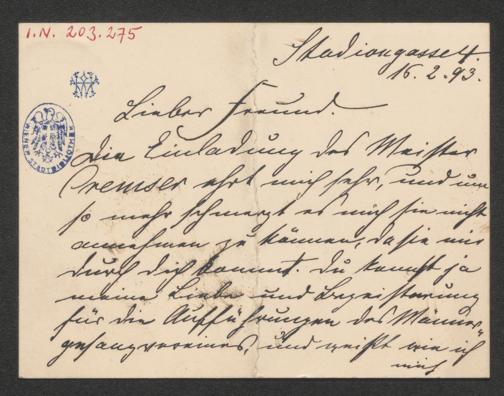 I.N. 203.275
Stadiongasse 4.
16.2.93.
Lieber Freund.
Die Einladung des Meister
Kremser ehrt mich sehr, und um
so mehr schmerzt es mich sie nicht
annehmen zu können, da sie mir
durch dich kommt. Du kennst ja
meine Liebe und Begeisterung
für die Aufführungen des Männer„
gesangvereines, und weißt wie ich
mich